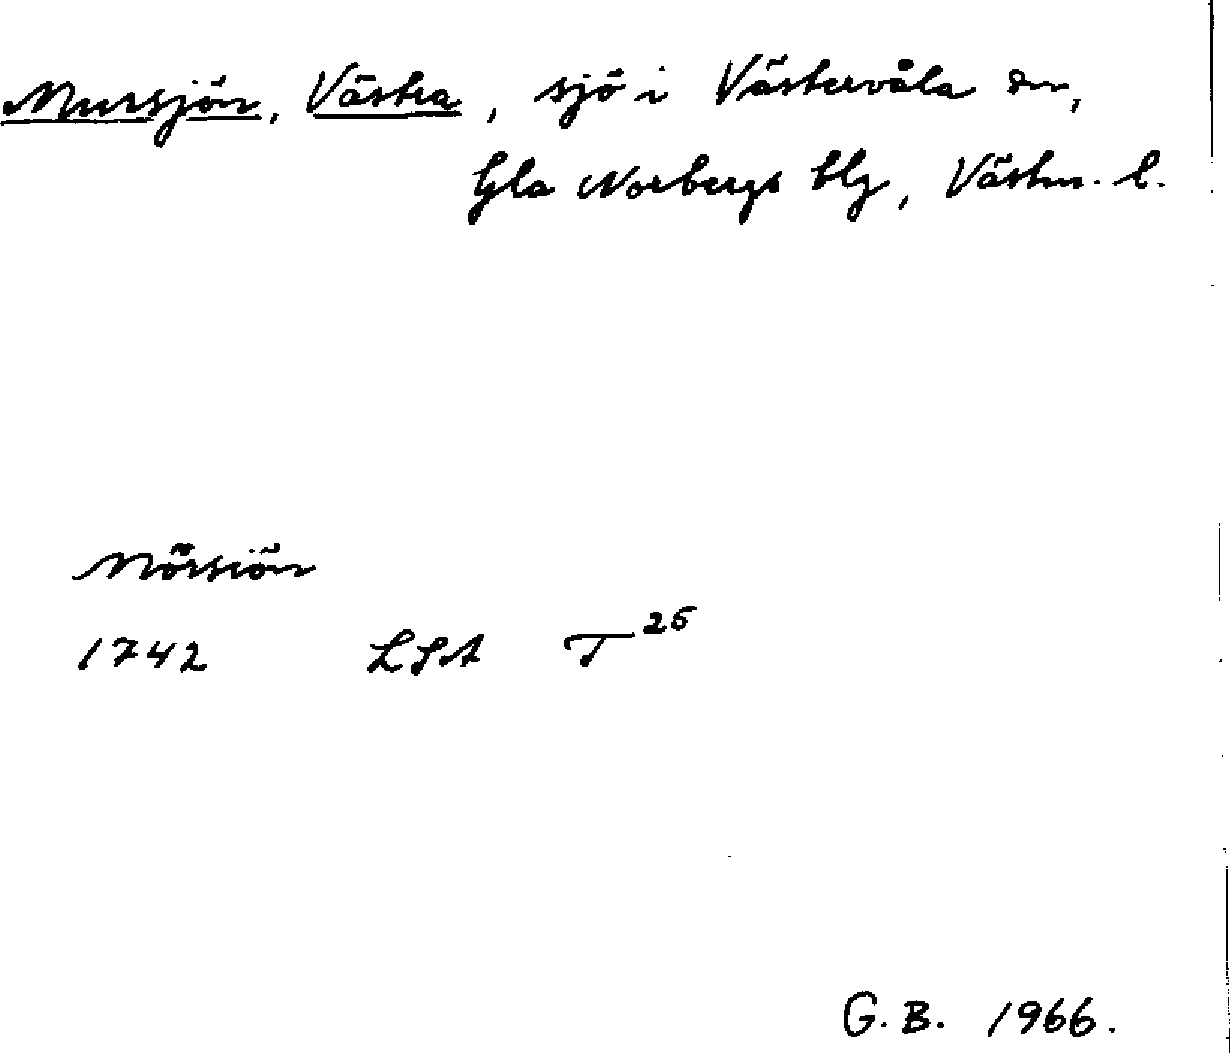 Mursjön, Västra, sjö i Västervåla sn,
Gla Norbergs blg, Västm. l.
Mörsiön
1742 LSA T 25
G.B. 1966.